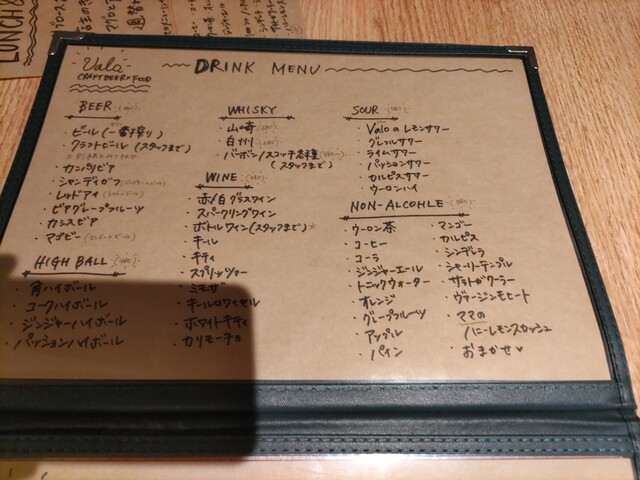 LUNCH &
Valo
CRAFT BEER & FOOD
DRINK MENU
BEER
・ビール(一番搾り)
・クラフトビール(スタッフまで)
・カンパリビア
・シャンディガフ
・レッドアイ
・ビアグレープフルーツ
・カシスビア
・マゴビー
HIGH BALL
・角ハイボール
・コークハイボール
・ジンジャーハイボール
・パッションハイボール
WHISKY
・山崎
・白州
・バーボン/スコッチ各種
(スタッフまで)
WINE
・赤/白グラスワイン
・スパークリングワイン
・ボトルワイン(スタッフまで)
・キール
・キティ
・スプリッツァー
・ミモザ
・キールロワイヤル
・ホワイトキティ
・カリモーチョ
SOUR
・Valoのレモンサワー
・グレフルサワー
・ライムサワー
・パッションサワー
・カルピスサワー
・ウーロンハイ
NON-ALCOHLE
・ウーロン茶
・コーヒー
・コーラ
・ジンジャーエール
・トニックウォーター
・オレンジ
・グレープフルーツ
・アップル
・パイン
・マンゴー
・カルピス
・シンデレラ
・シャーリーテンプル
・サラトガクーラー
・ヴァージンモヒート
・ママの
ハニーレモンスカッシュ
・おまかせ♥